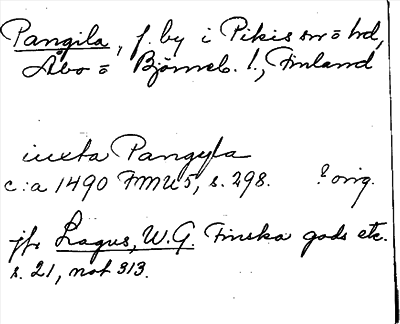 Pangila, f. by i Pikis sn o hd,
Åbo o Björneb. l., Finland
iuxta Pangyla
c:a 1490 FMU 5, s. 298. ? orig.
jfr Lagus, W.G. Finska gods etc.
s. 21, not 313.